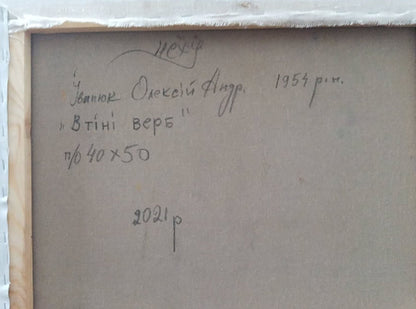 Іванюк Олексій Андр. 1954 р.н.
„В тіні верб"
п/о 40×50
2021 р